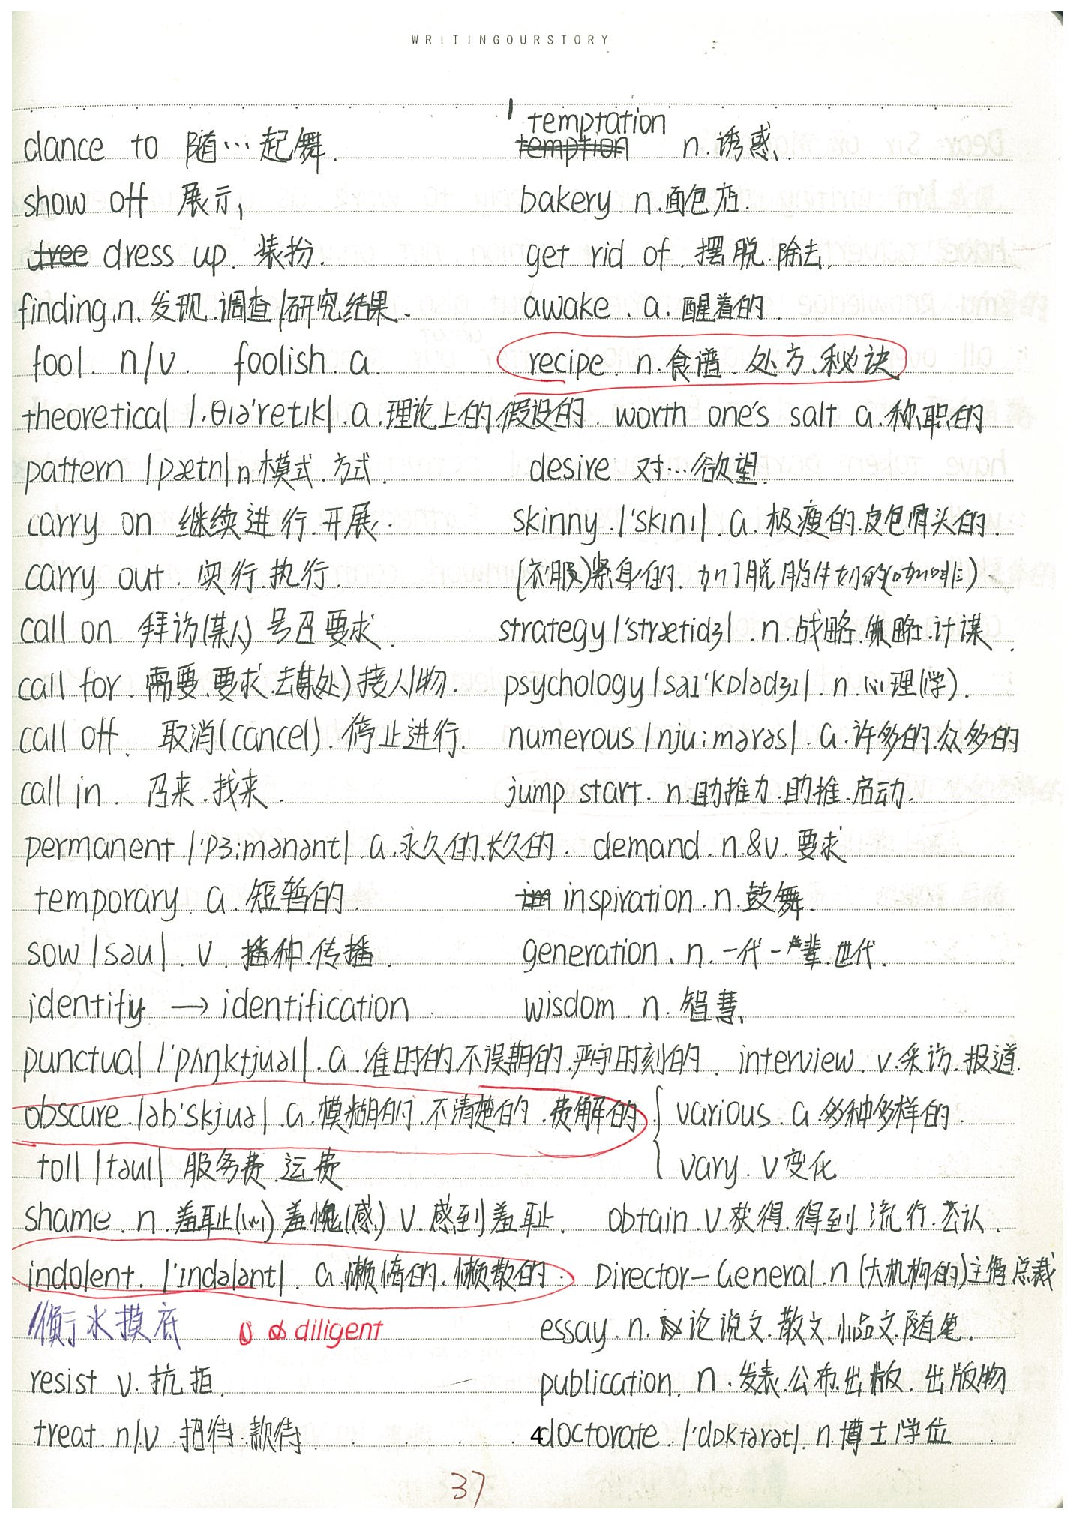 WRITINGOURSTORY
dance to 随…起舞. temptation
temption n.诱惑
show off 展示 bakery n.面包店.
tree dress up. 装扮. get rid of 摆脱.除去
finding.n.发现.调查/研究结果. awake.a.醒着的.
fool. n/v. foolish.a. recipe.n.食谱.处方.秘诀
theoretical |.θɪə'retɪk|.a.理论上的.假设的. worth one's salt a.称职的
pattern |pætn|n.模式.方式 desire 对…欲望.
carry on 继续进行.开展. skinny.|'skɪnɪ|.a.极瘦的.皮包骨头的.
carry out.实行.执行. (衣服)紧身的.
call on 拜访(某人) 号召.要求. strategy|'strætidʒ|.n.战略.策略.计谋.
call for.需要.要求.去(某处)接人/物. psychology|saɪ'kɒlədʒɪ|.n.心理(学).
call off. 取消(cancel).停止进行. numerous|nju:mərəs|.a.许多的.众多的
call in. 召来.找来. jump start.n.助推力.助推.启动.
permanent |'pɜ:mənənt|.a.永久的.长久的. demand.n.&v.要求
temporary.a.短暂的. im inspiration.n.鼓舞.
sow|səu|.v.播种.传播. generation.n.一代.一辈.世代.
identify → identification wisdom.n.智慧
punctual |'pʌŋktjuəl|.a.准时的.不误期的.严守时刻的. interview.v.采访.报道.
obscure.|əb'skjuə|.a.模糊的.不清楚的.费解的 various.a.多种多样的.
toll |təul| 服务费.运费 vary.v变化
shame.n.羞耻(心) 羞愧(感) v.感到羞耻. obtain.v获得.得到.流行.公认.
indolent.|'ɪndələnt|.a.懒惰的.懒散的 Director-General.n(大机构的)主管.总裁
衡水摸底 diligent essay.n.论说文.散文.小品文.随笔.
resist v.抗拒. publication.n.发表.公布.出版.出版物
treat n/v.招待.款待 doctorate.|'dɒktərət|.n.博士学位
37